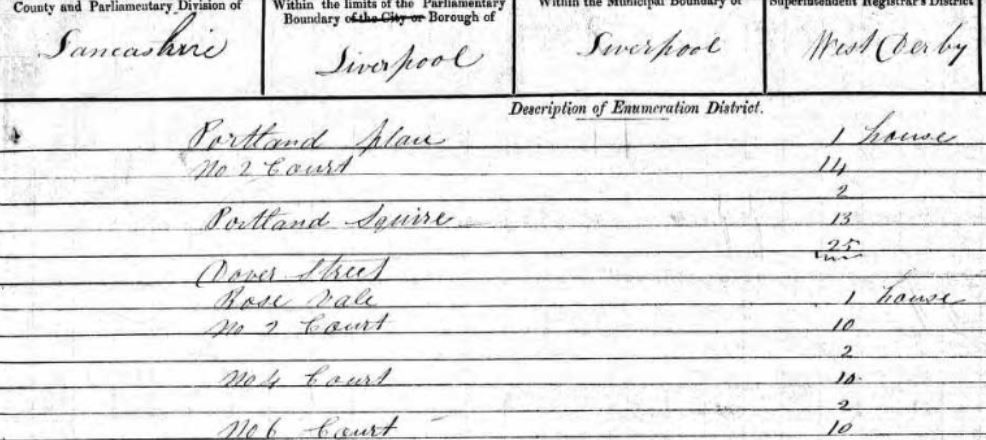 County and Parliamentary Division of
Lancashire
Within the limits of the Parliamentary
Boundary of the City or Borough of
Liverpool
Within the Municipal Boundary of
Liverpool
Superintendent Registrar's District
West Derby
Description of Enumeration District.
Portland place 1 house
No 2 Court 14
2
Portland Squire 13
25
Dover Street
Rose Vale 1 house
No 2 Court 10
2
No 4 Court 10
2
No 6 Court 10